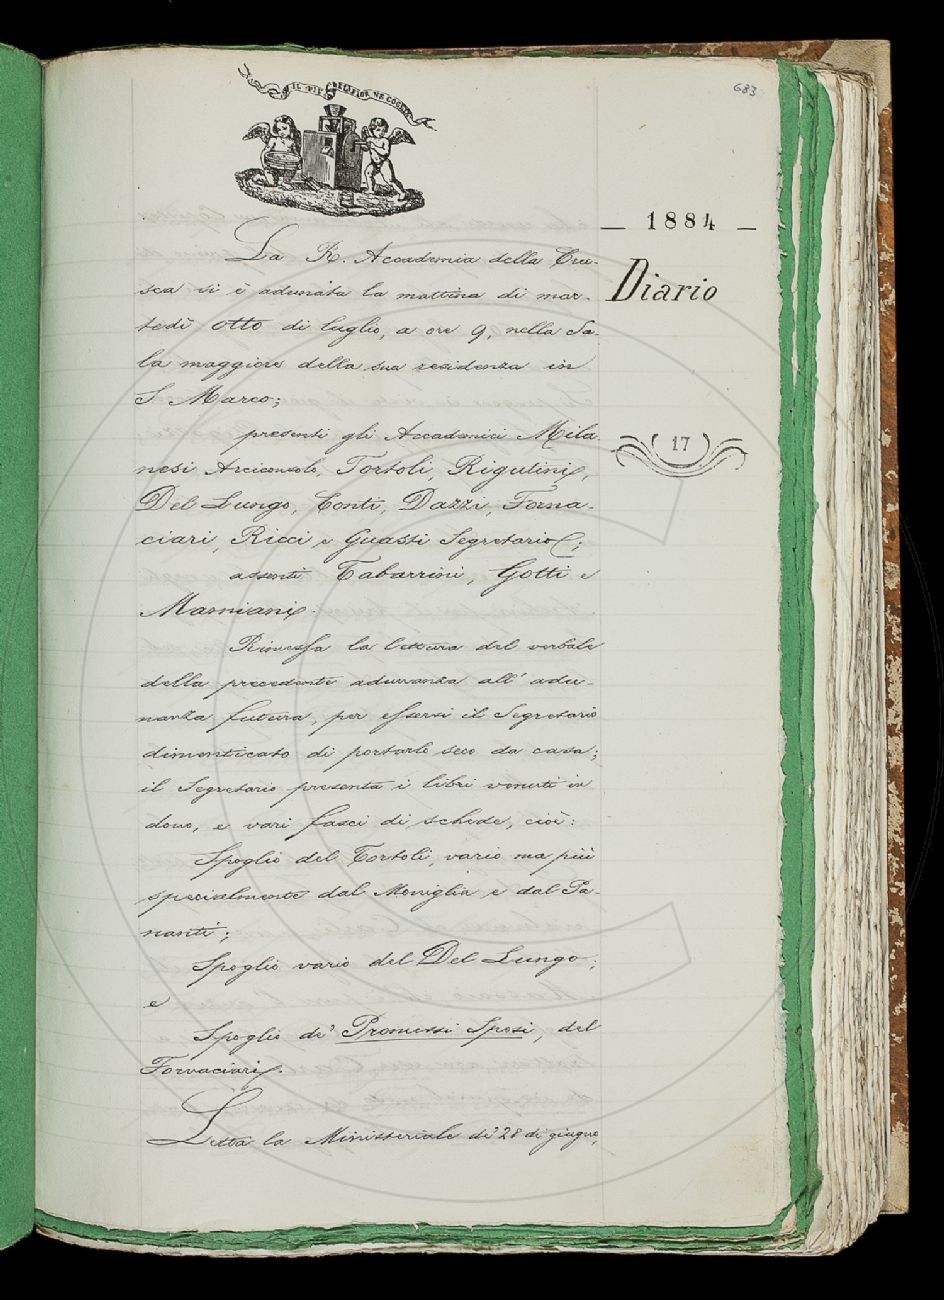 683
IL PIÙ BEL FIOR NE COGLIE
— 1884 —
Diario
17
La R. Accademia della Cru-
sca si è adunata la mattina di mar-
tedì otto di luglio, a ore 9, nella Sa-
la maggiore della sua residenza in
S. Marco;
presenti gli Accademici Mila
nesi Arciconsolo, Tortoli, Rigutini,
Del Lungo, Conti, Dazzi, Forna-
ciari, Ricci e Guasti Segretario;
assenti Tabarrini, Gotti e
Mamiani.
Rimessa la lettura del verbale
della precedente adunanza all' adu-
nanza futura, per essersi il Segretario
dimenticato di portarlo seco da casa;
il Segretario presenta i libri venuti in
dono, e vari fasci di schede, cioè:
Spoglio del Tortoli, vario ma più
specialmente dal Moniglia e dal Pa-
nanti;
Spoglio vario del Del Lungo;
e
Spoglio de' Promessi Sposi, del
Fornaciari.
Letta la Ministeriale de' 28 di giugno,